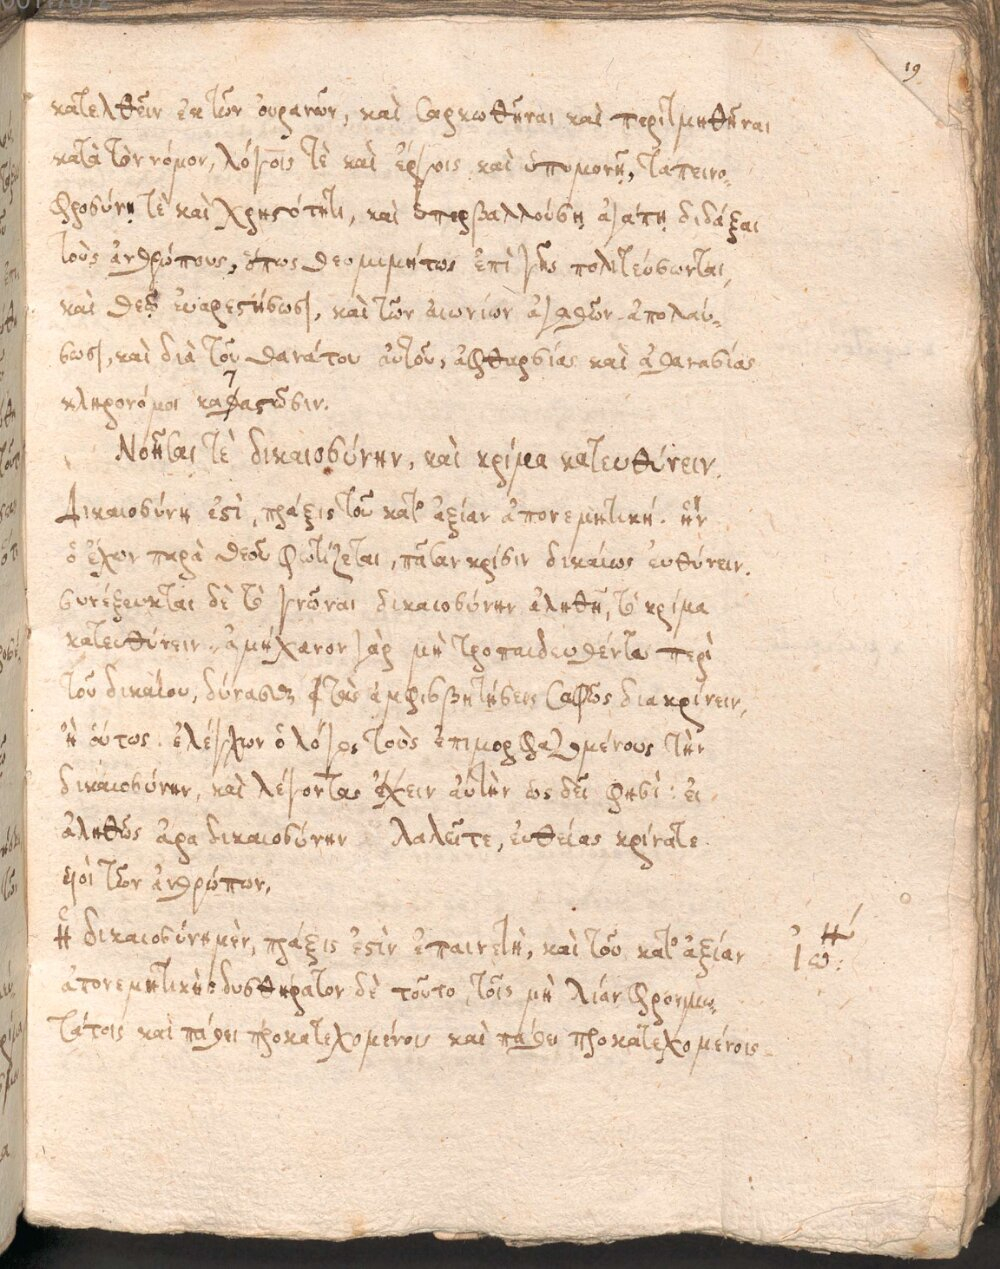 19
κατελθεῖν ἐκ τῶν ὀυρανῶν, καὶ σαρκωθῆναι καὶ περιτμηθῆναι
κατὰ τὸν νόμον, λόγοις τὲ καὶ ἔργοις καὶ ὑπομονῇ, ταπεινο-
φροσύνῃ τὲ καὶ χρηστότητι, καὶ ὑπερβαλλούσῃ ἀγάπῃ διδάξαι
τοὺς ἀνθρώπους, ὅπως θεομιμήτως ἐπὶ γῆς πολιτεύσωνται,
καὶ θεῷ ἐυαρεστήσωσι, καὶ τῶν αιωνίων ἀγαθῶν ἀπολαύ-
σωσι, καὶ διὰ τοῦ θανάτου ἀυτοῦ, ἀφθαρσίας καὶ ἀθανασίας
κληρονόμοι καταστῶσιν.
Νοῆσαι τὲ δικαιοσύνην, καὶ κρίμα κατευθύνειν.
Δικαιοσύνη ἐστὶ, πράξις τοῦ κατ' ἀξίαν ἀπονεμητική. ἣν
ὁ ἔχων παρὰ θεοῦ φωτίζεται, πᾶσαν κρίσιν δικαίως ἐυθύνειν.
συνέζευκται δὲ τῷ γνῶναι δικαιοσύνην ἀληθῆ, τὸ κρίμα
κατευθύνειν. ἀμήχανον γὰρ μὴ προπαιδευθέντα περὶ
τοῦ δικαίου, δύνασθαι τὰς ἀμφισβητήσεις σαφῶς διακρίνειν,
ἢ ὅυτως. ἐλέγχων ὁ λόγος τοὺς ἐπιμορφαζομένους τὴν
δικαιοσύνην, καὶ λέγοντας ἔχειν ἀυτὴν ὡς δεῖ φησὶ: ἐι
ἀληθῶς ἄρα δικαιοσύνην λαλεῖτε, ἐυθείας κρίνατε
υἱοὶ τῶν ἀνθρώπων,
Ἡ δικαιοσύνη μὲν, πράξις ἐστὶν ἐπαινετὴ, καὶ τοῦ κατ' ἀξίαν
ἀπονεμητικὴ: δυσθήρατον δὲ τοῦτο τοῖς μὴ λίαν φρονιμω-
τάτοις καὶ πάθει προκατεχομένοις καὶ πάθει προκατεχομένοις